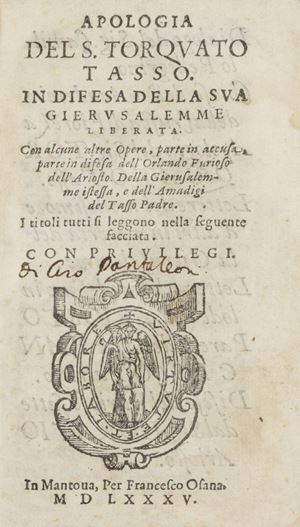 APOLOGIA
DEL S. TORQVATO
TASSO.
IN DIFESA DELLA SVA
GIERVSALEMME
LIBERATA.
Con alcune altre Opere, parte in accusa,
parte in difesa dell'Orlando Furioso
dell'Ariosto. Della Gierusalem-
me istessa, e dell'Amadigi
del Tasso Padre.
I titoli tutti si leggono nella seguente
facciata.
CON PRIVILEGI.
di Ciro Pantaleon
VIRTVTE ET LABORE
In Mantoua, Per Francesco Osana.
M D LXXXV.